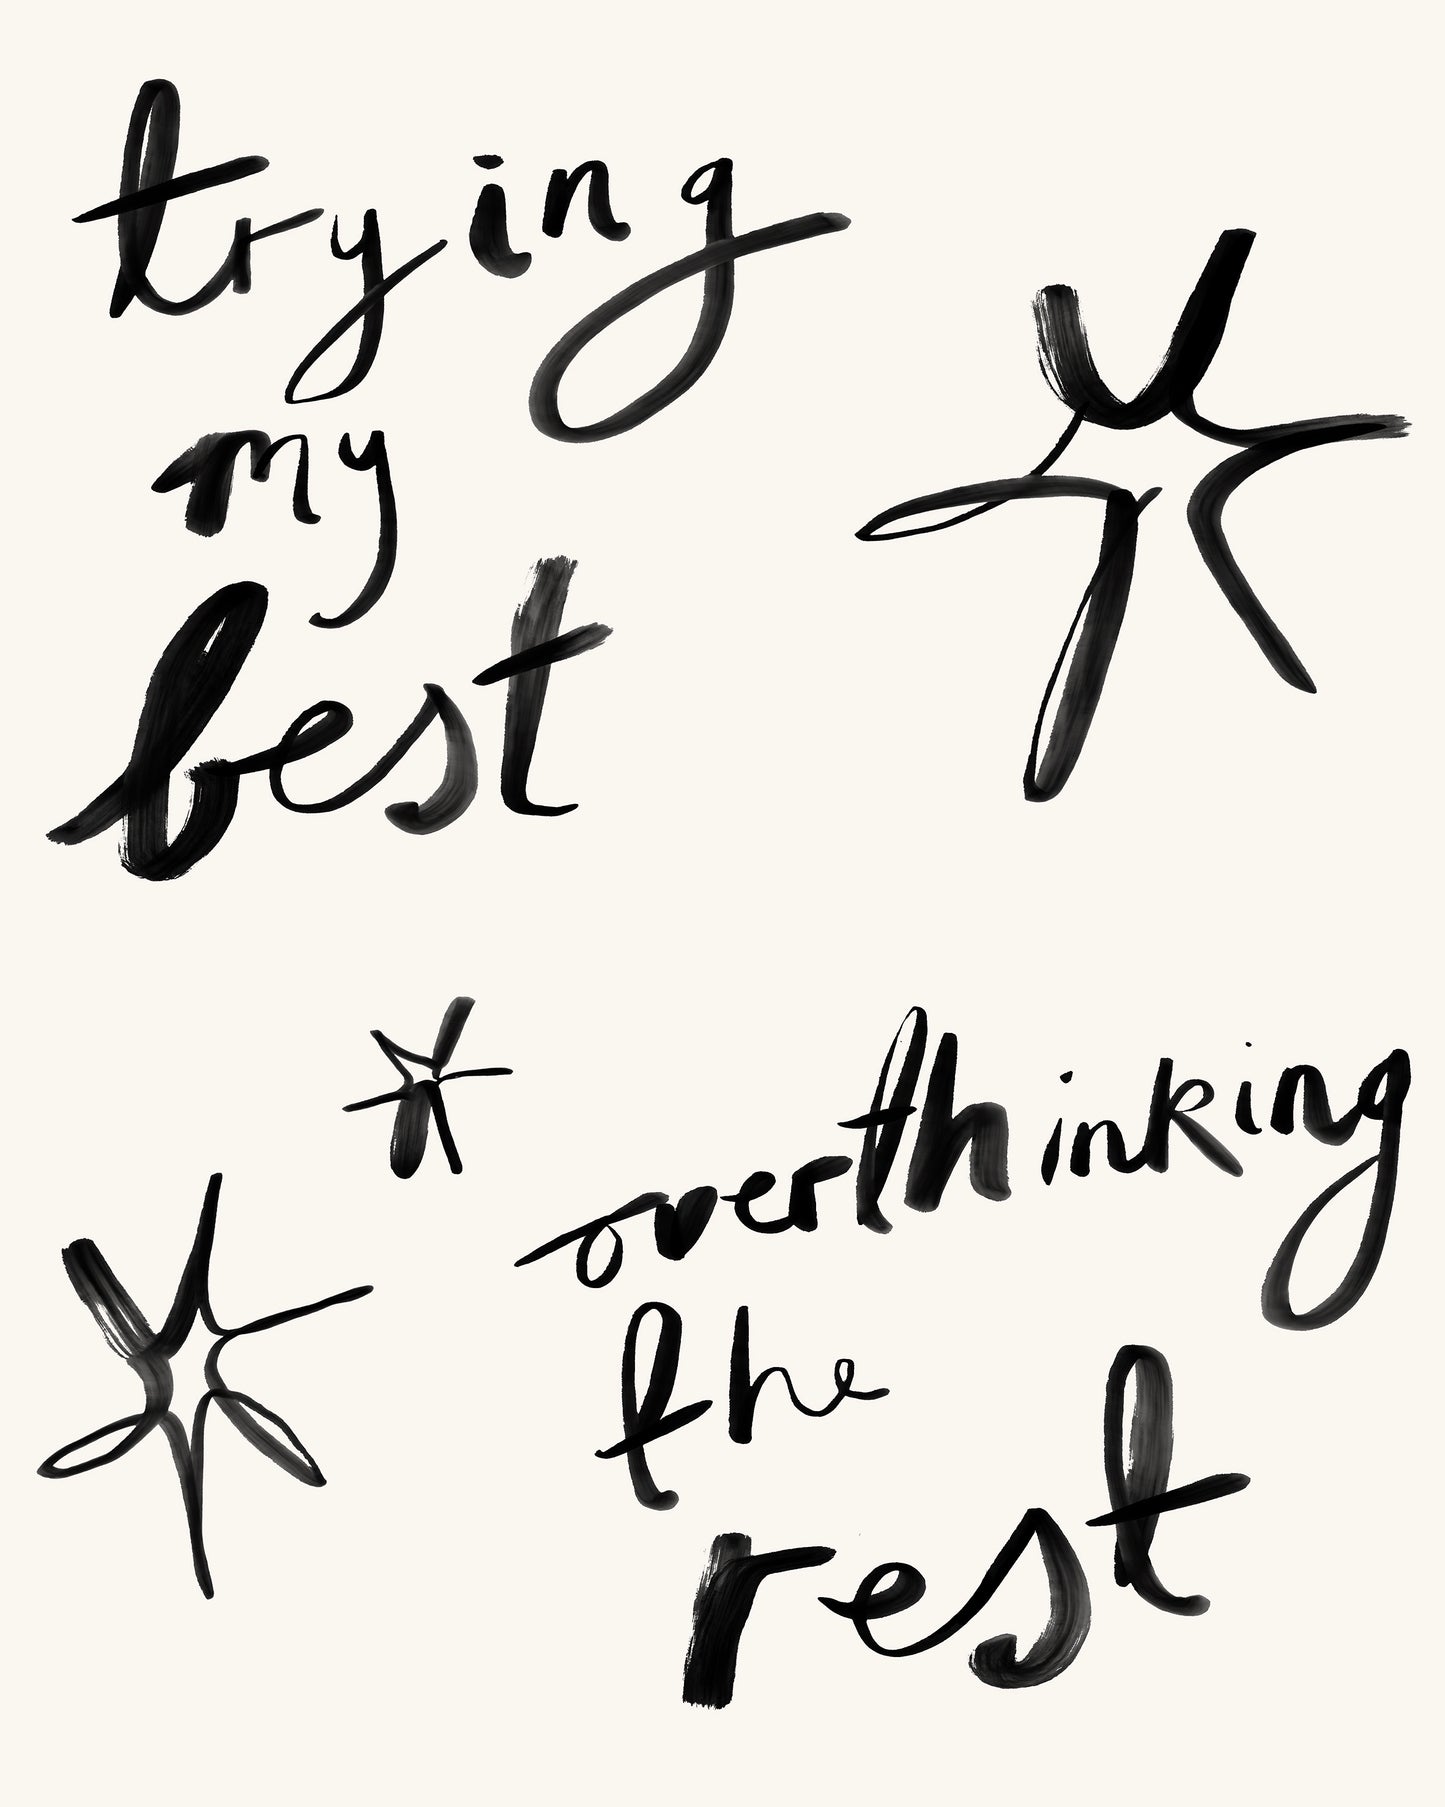 trying
my
best
overthinking
the
rest